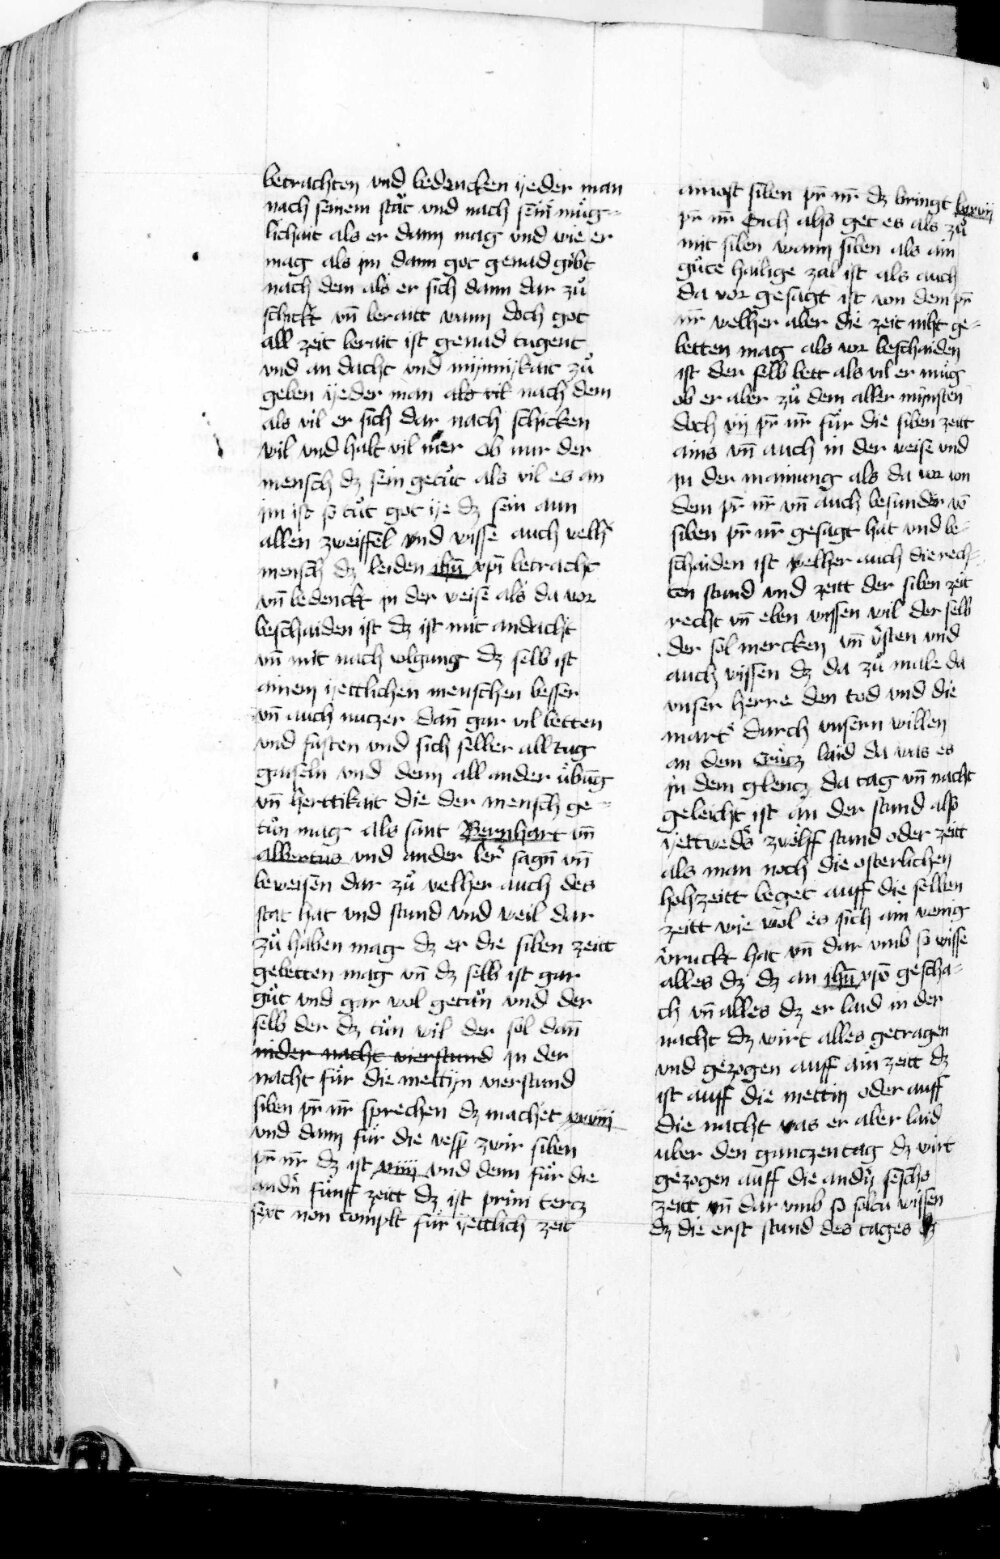 betrachten vnd bedencken yeder man
nach seinem staͤt vnd nach sein̄ muͤg-
lichait als er dann mag vnd wie er
mag als jm dann got genad gibt
nach dem als er sich dann dar zuͦ
schickt vn̄ berait wann doch got
all zeit berait ist genad tugent
vnd an dacht vnd mynnykait zuͦ
geben yeder man als vil nach dem
als vil er sich dar nach schicken
wil vnd halt vil mer ob nur der
mensch dz sein getuͦt als vil es an
jm ist so tuͦt got ye dz sein aun
allen zweiffel vnd wisse auch welh̾
mensch dz leiden ihū xp̄i betracht
vn̄ bedenckt jn der weise als da vor
beschaiden ist dz ist mit andacht
vn̄ mit nach volgung dz selb ist
ainem yettlichen menschen besser
vn̄ auch nutzer dan̄ gar vil betten
vnd fasten vnd sich selber all tag
gaiseln vnd denn all ander uͤbūg
vn̄ herttikait die der mensch ge-
tuͦn mag als sant Bernhart vn̄
albertus vnd ander ler̾ sagn̄ vn̄
beweisen dar zuͦ welher auch des
stat hat vnd stund vnd weil dar
zuͦ haben mag dz er die siben zeitt
gebetten mag vn̄ dz selb ist gar
guͦt vnd gar wol getaͧn vnd der
selb der dz tuͦn wil der sol dan̄
in der nacht vierstund jn der
nacht fuͤr die mettyn vierstund
siben pr̄ nr̄ sprechen dz machet xxviij
vnd dann fuͤr die vesp̄ zwir siben
pr̄ nr̄ dz ist xiiij vnd denn fuͤr die
andn̾ fuͤnff zeitt dz ist prim tertz
sext non complet fuͤr yettlich zeit
ainost siben pr̄ nr̄ dz bringt lxxvij
pr̄ nr̄ Auch also get es als zuͦ
mit siben wann siben als ain
guͦte hailige zal ist als auch
da vor gesagt ist von dem pr̄
nr̄ welher aber die zeit niht ge-
betten mag als vor beschaiden
ist der selb bett als vil er muͤg
ob er aber zuͦ dem aller mynsten
doch vij pr̄ nr̄ fuͤr die siben zeitt
ains vn̄ auch in der weise vnd
jn der mainung als da vor von
dem pr̄ nr̄ vn̄ auch besunder vō
siben pr̄ nr̄ gesagt hat vnd be-
schaiden ist welher auch die rech-
ten stund vnd zeitt der siben zeit
recht vn̄ eben wissen wil der selb
der sol mercken vn̄ v̾sten vnd
auch wissen dz da zuͦ male da
vnser herre den tod vnd die
mart̾ durch vnsern willen
an dem Creütz laid da was es
jn dem glentz da tag vn̄ nacht
geleicht ist an der stund also
yettweds̾ zwoͤlff stund oder zeitt
als man noch die osterlichen
hohzeitt beget auff die selben
zeitt wie wol es sich ain wenig
v̾ruckt hat vn̄ dar vmb so wisse
alles dz dz an ihū xp̄o gescha-
ch vn̄ alles dz er laid in der
nacht dz wirt alles getragen
vnd gezogen auff ain zeitt dz
ist auff die mettin oder auff
die nacht was er aber laid
uber den gantzen tag dz wirt
gezogen auff die andn̾ sechs
zeitt vn̄ dar vmb so soltu wissen
dz die erst stund des tages